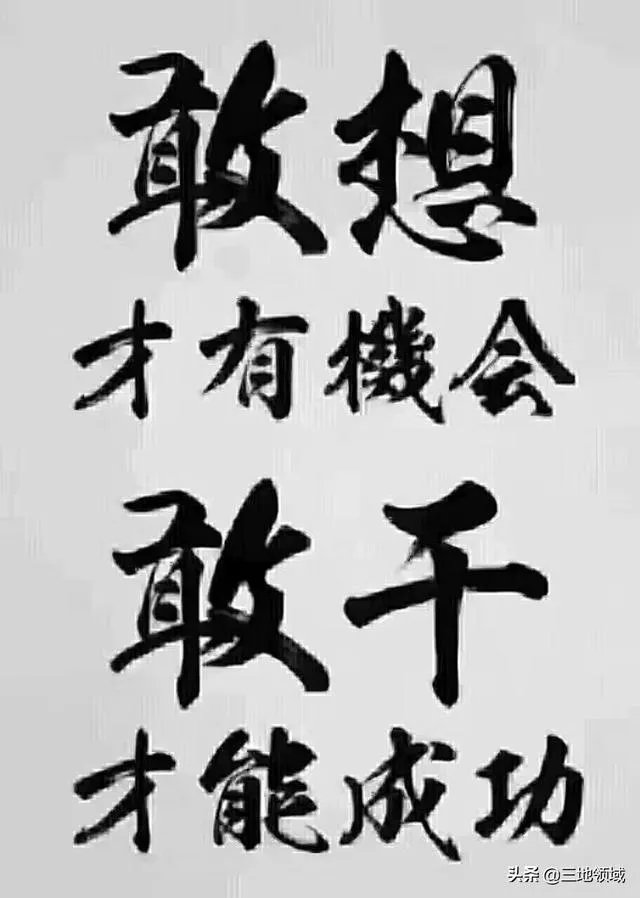 敢想
才有機会
敢干
才能成功
头条 @三地领域